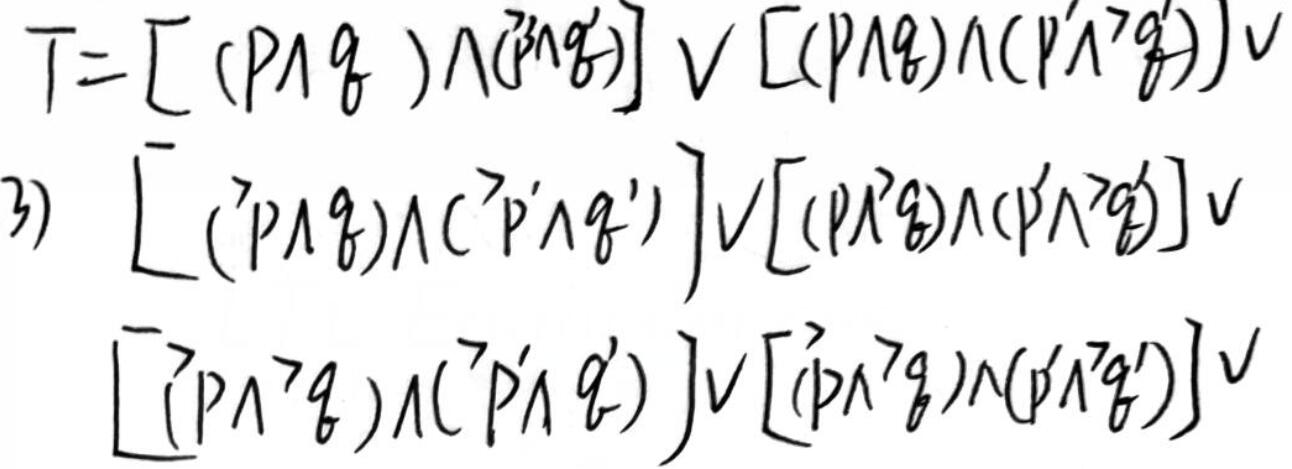 T = [(p∧q)∧(¬p'∧q')] ∨ [(p∧q)∧(p'∧¬q')] ∨
3) [(¬p∧q)∧(¬p'∧q')] ∨ [(p∧¬q)∧(p'∧¬q')] ∨
[(¬p∧¬q)∧(¬p'∧q')] ∨ [(¬p∧¬q)∧(p'∧¬q')] ∨